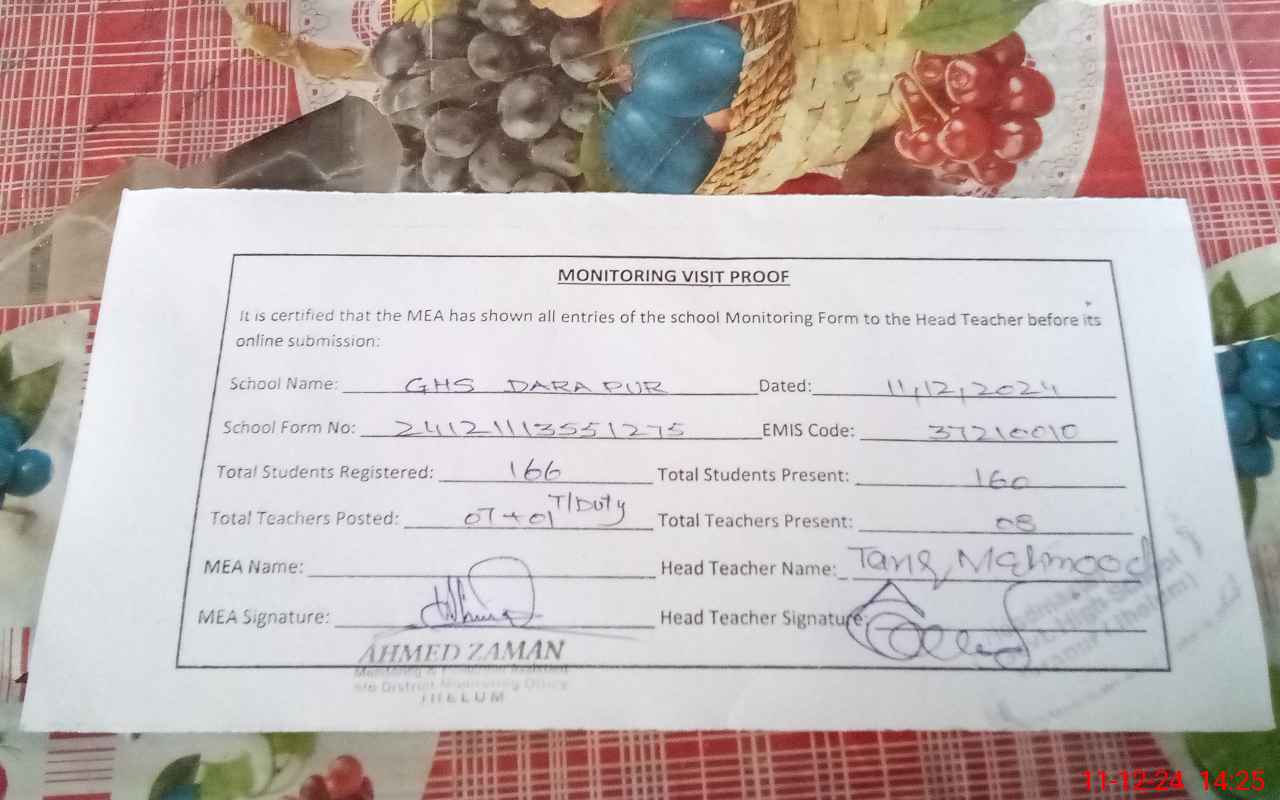 MONITORING VISIT PROOF
It is certified that the MEA has shown all entries of the school Monitoring Form to the Head Teacher before its
online submission:
School Name: GHS DARAPUR Dated: 11,12,2024
School Form No: 24121113551275 EMIS Code: 37210010
Total Students Registered: 166 Total Students Present: 160
Total Teachers Posted: 07+01 T/Duty Total Teachers Present: 08
MEA Name: Head Teacher Name: Tariq Mahmood
MEA Signature: Head Teacher Signature:
AHMED ZAMAN
Monitoring &
o/o District Monitoring Office
JHELUM
High School
11-12-24 14:25